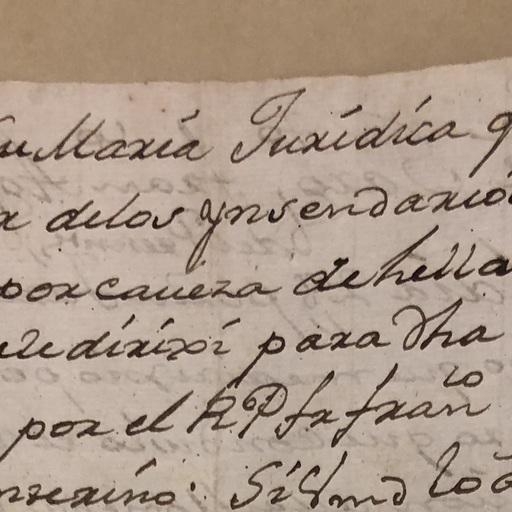 Maria Juridica q
delos ynsendario
por caueza de hella
le dirixi para dha
por el RP fr fran^co
Si Vmd lo